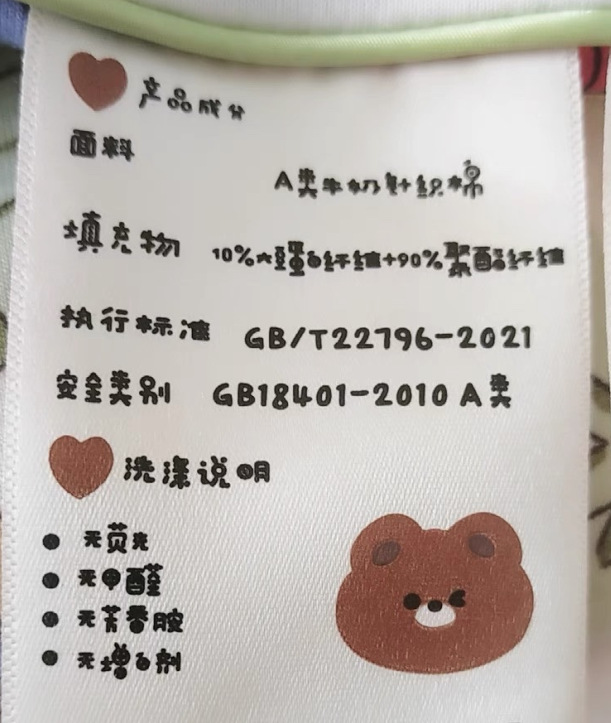 产品成分
面料 A类牛奶针织棉
填充物 10%大豆蛋白纤维+90%聚酯纤维
执行标准 GB/T22796-2021
安全类别 GB18401-2010 A类
洗涤说明
无荧光
无甲醛
无芳香胺
无增白剂